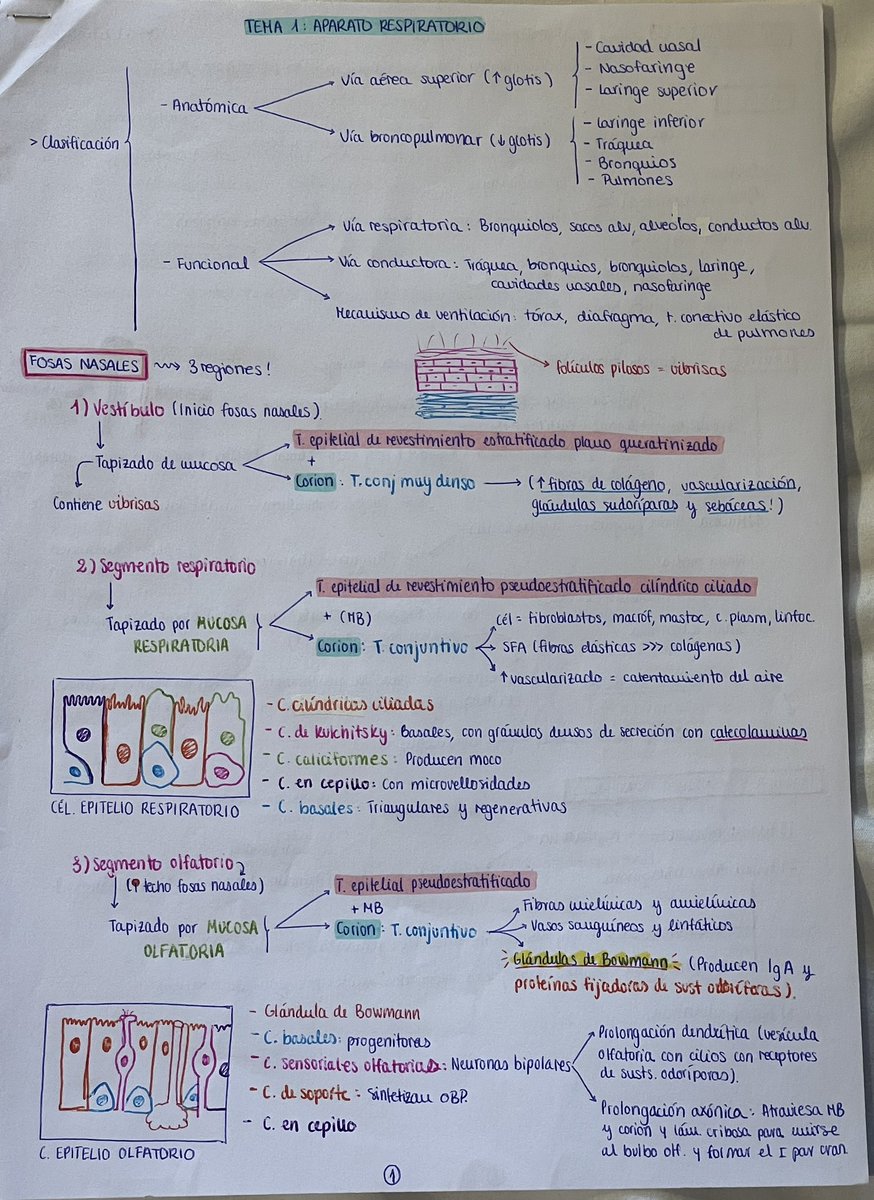 TEMA 1: APARATO RESPIRATORIO
> Clasificación
- Anatómica
Vía aérea superior (↑glotis)
- Cavidad nasal
- Nasofaringe
- Laringe superior
Vía broncopulmonar (↓glotis)
- Laringe inferior
- Tráquea
- Bronquios
- Pulmones
- Funcional
Vía respiratoria: Bronquiolos, sacos alv, alveólos, conductos alv.
Vía conductora: Tráquea, bronquios, bronquiolos, laringe,
cavidades nasales, nasofaringe
Mecanismo de ventilación: tórax, diafragma, t. conectivo elástico
de pulmones
FOSAS NASALES ⟿ 3 regiones!
folículos pilosos = vibrisas
1) Vestíbulo (Inicio fosas nasales).
Tapizado de mucosa
Contiene vibrisas
T. epitelial de revestimiento estratificado plano queratinizado
+
Corion: T. conj muy denso → (↑ fibras de colágeno, vascularización,
glándulas sudoríparas y sebáceas!)
2) Segmento respiratorio
Tapizado por MUCOSA
RESPIRATORIA
T. epitelial de revestimiento pseudoestratificado cilíndrico ciliado
+ (MB)
Corion: T. conjuntivo
Cél = fibroblastos, macróf, mastoc, c. plasm, linfoc.
SFA (fibras elásticas >>> colágenas)
↑ vascularizado = calentamiento del aire
CÉL. EPITELIO RESPIRATORIO
- C. cilíndricas ciliadas
- C. de Kulchitsky: Basales, con gránulos densos de secreción con catecolaminas
- C. caliciformes: Producen moco
- C. en cepillo: Con microvellosidades
- C. basales: Triangulares y regenerativas
3) Segmento olfatorio
(techo fosas nasales)
Tapizado por MUCOSA
OLFATORIA
T. epitelial pseudoestratificado
+ MB
Corion: T. conjuntivo
Fibras mielínicas y amielínicas
Vasos sanguíneos y linfáticos
Glándulas de Bowmann (Producen IgA y
proteínas fijadoras de sust odoríferas).
C. EPITELIO OLFATORIO
- Glándula de Bowmann
- C. basales: progenitoras
- C. sensoriales olfatorias: Neuronas bipolares
- C. de soporte: Sintetizan OBP.
- C. en cepillo
Prolongación dendrítica (vesícula
olfatoria con cilios con receptores
de susts. odoríporas).
Prolongación axónica: Atraviesa MB
y corion y lám. cribosa para unirse
al bulbo olf. y formar el I par cran.
1